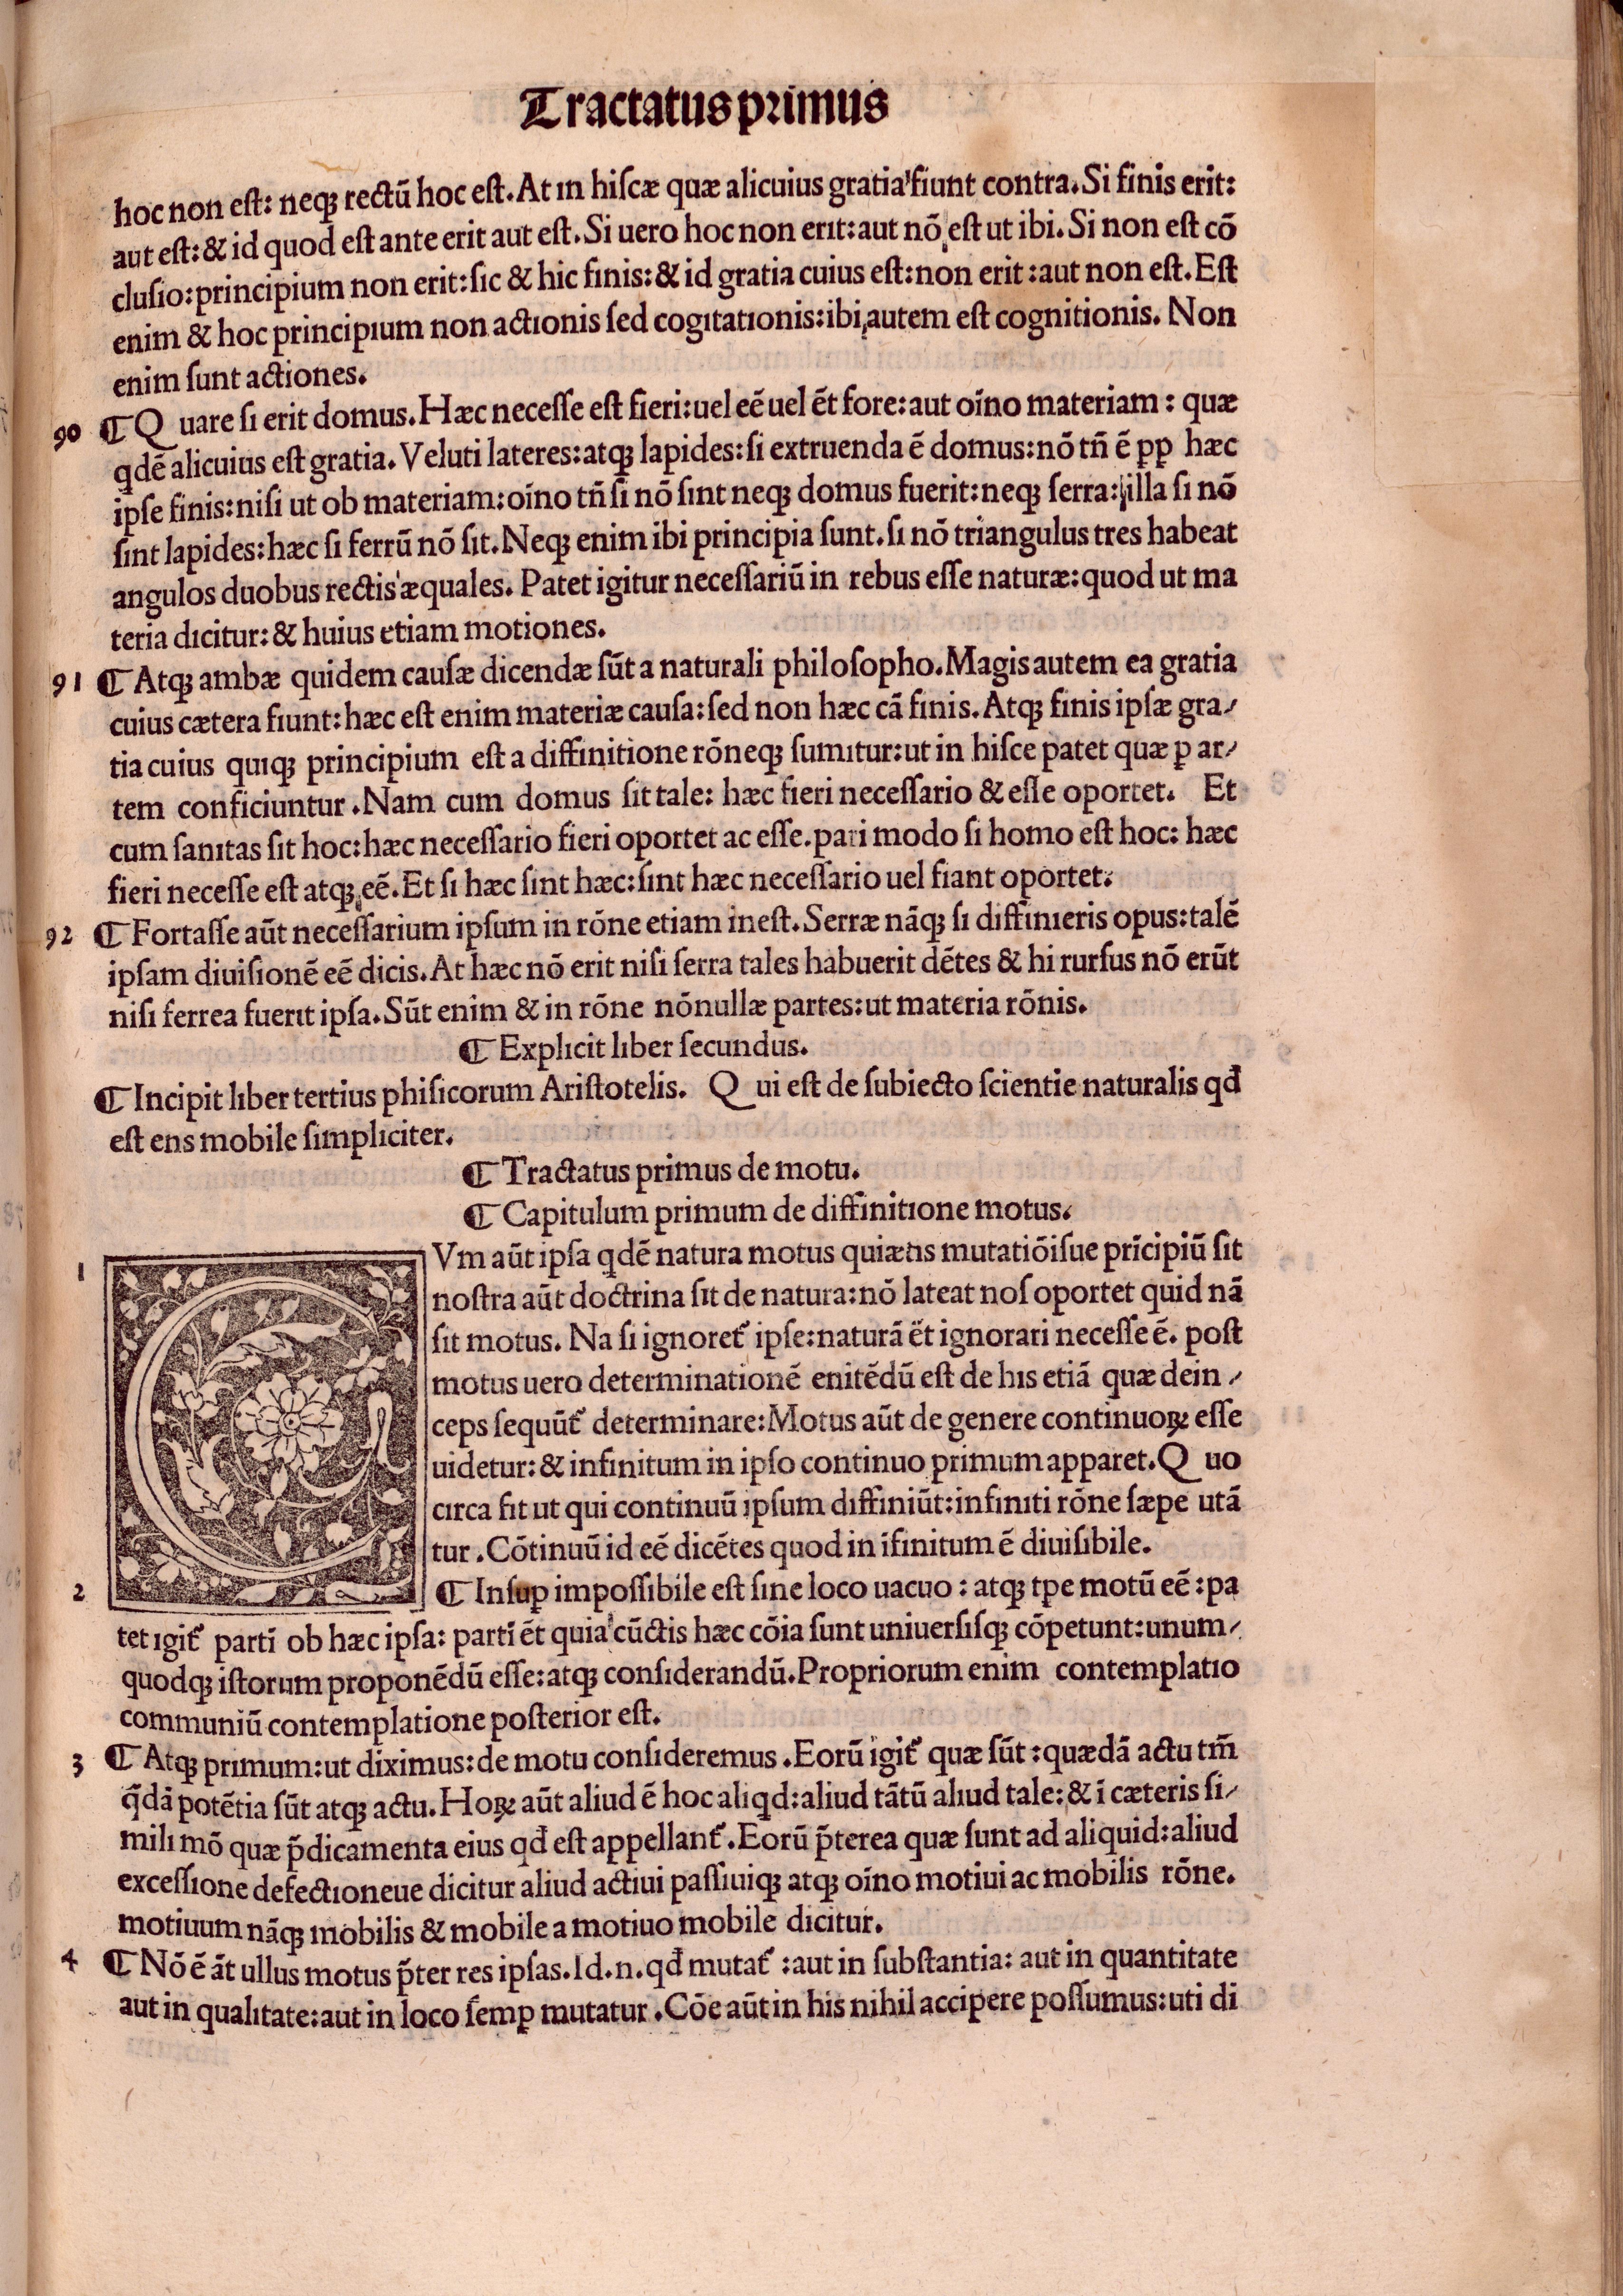 Tractatus primus
hoc non est: neqꝫ rectū hoc est. At in hiscæ quæ alicuius gratia fiunt contra. Si finis erit:
aut est: & id quod est ante erit aut est. Si uero hoc non erit: aut nō est ut ibi. Si non est cō
clusio: principium non erit: sic & hic finis: & id gratia cuius est: non erit: aut non est. Est
enim & hoc principium non actionis sed cogitationis: ibi autem est cognitionis. Non
enim sunt actiones.
90 ¶ Quare si erit domus. Hæc necesse est fieri: uel eē uel ēt fore: aut oīno materiam: quæ
qdē alicuius est gratia. Veluti lateres: atqꝫ lapides: si extruenda ē domus: nō tn̄ ē ꝓp hæc
ipse finis: nisi ut ob materiam: oīno tn̄ si nō sint neqꝫ domus fuerit: neqꝫ serra: illa si nō
sint lapides: hæc si ferrū nō sit. Neqꝫ enim ibi principia sunt. si nō triangulus tres habeat
angulos duobus rectis æquales. Patet igitur necessariū in rebus esse naturæ: quod ut ma
teria dicitur: & huius etiam motiones.
91 ¶ Atqꝫ ambæ quidem causæ dicendæ sūt a naturali philosopho. Magis autem ea gratia
cuius cætera fiunt: hæc est enim materiæ causa: sed non hæc cā finis. Atqꝫ finis ipsæ gra-
tia cuius quiqꝫ principium est a diffinitione rōneqꝫ sumitur: ut in hisce patet quæ ꝑ ar-
tem conficiuntur. Nam cum domus sit tale: hæc fieri necessario & esse oportet. Et
cum sanitas sit hoc: hæc necessario fieri oportet ac esse. pari modo si homo est hoc: hæc
fieri necesse est atqꝫ eē. Et si hæc sint hæc: sint hæc necessario uel fiant oportet.
92 ¶ Fortasse aūt necessarium ipsum in rōne etiam inest. Serræ nāqꝫ si diffinieris opus: talē
ipsam diuisionē eē dicis. At hæc nō erit nisi serra tales habuerit dētes & hi rursus nō erūt
nisi ferrea fuerit ipsa. Sūt enim & in rōne nōnullæ partes: ut materia rōnis.
¶ Explicit liber secundus.
¶ Incipit liber tertius phisicorum Aristotelis. Qui est de subiecto scientie naturalis qđ
est ens mobile simpliciter.
¶ Tractatus primus de motu.
¶ Capitulum primum de diffinitione motus.
1 CVm aūt ipsa qdē natura motus quiætis mutatiōisue prīcipiū sit
nostra aūt doctrina sit de natura: nō lateat nos oportet quid nā
sit motus. Na si ignoret᷑ ipse: naturā ēt ignorari necesse ē. post
motus uero determinationē enitēdū est de his etiā quæ dein-
ceps sequūt᷑ determinare: Motus aūt de genere continuoꝝ esse
uidetur: & infinitum in ipso continuo primum apparet. Quo
circa fit ut qui continuū ipsum diffiniūt: infiniti rōne sæpe utā
tur. Cōtinuū id eē dicētes quod in īfinitum ē diuisibile.
2 ¶ Insuꝑ impossibile est sine loco uacuo: atqꝫ tpe motū eē: pa
tet igit᷑ partī ob hæc ipsa: partī ēt quia cūctis hæc cōia sunt uniuersisqꝫ cōpetunt: unum-
quodqꝫ istorum proponēdū esse: atqꝫ considerandū. Propriorum enim contemplatio
communiū contemplatione posterior est.
3 ¶ Atqꝫ primum: ut diximus: de motu consideremus. Eorū igit᷑ quæ sūt: quædā actu tm̄
q̄dā potētia sūt atqꝫ actu. Hoꝝ aūt aliud ē hoc aliqd: aliud tātū aliud tale: & ī cæteris si-
mili mō quæ p̄dicamenta eius qđ est appellant᷑. Eorū p̄terea quæ sunt ad aliquid: aliud
excessione defectioneue dicitur aliud actiui passiuiqꝫ atqꝫ oīno motiui ac mobilis rōne.
motiuum nāqꝫ mobilis & mobile a motiuo mobile dicitur.
4 ¶ Nō ē āt ullus motus p̄ter res ipsas. Id. n. qđ mutat᷑: aut in substantia: aut in quantitate
aut in qualitate: aut in loco semꝑ mutatur. Cōe aūt in his nihil accipere possumus: uti di